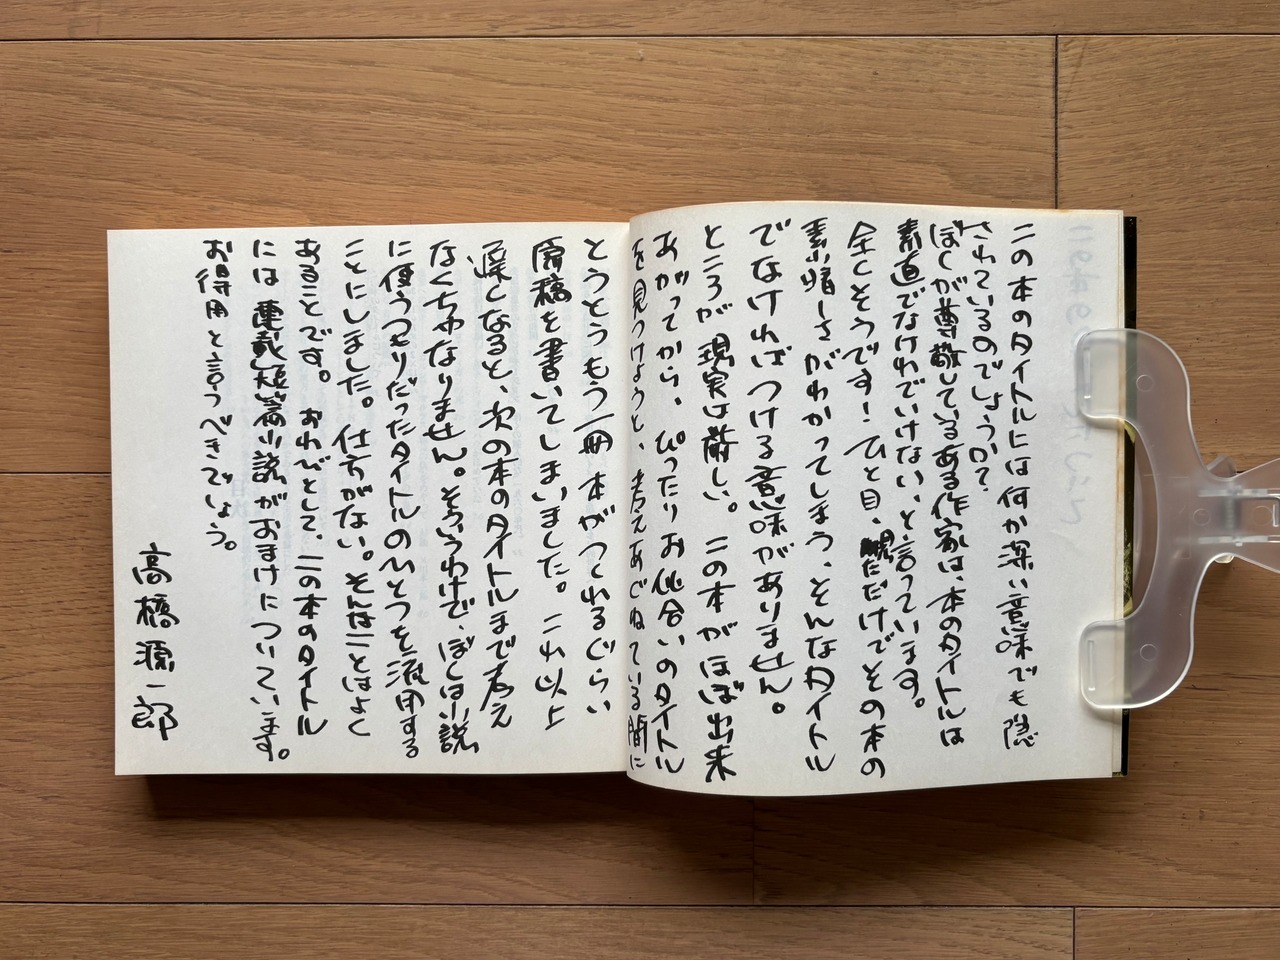 この本のタイトルには何か深い意味でも隠
されているのでしょうか?
ぼくが尊敬しているある作家は、本のタイトルは
素直でなけれでいけない、と言っています。
全くそうです!ひと目、眺ただけでその本の
素晴しさがわかってしまう、そんなタイトル
でなければつける意味がありません。
ところが現実は厳しい。この本がほぼ出来
あがってから、ぴったりお似合いのタイトル
を見つけようと、考えあぐねている間に
とうとうもう一冊本がつくれるぐらい
原稿を書いてしまいました。これ以上
遅くなると、次の本のタイトルまで考え
なくちゃなりません。そういうわけで、ぼくは小説
に使うつもりだったタイトルのひとつを流用する
ことにしました。仕方がない。そんなことはよく
あることです。おわびとして、この本のタイトル
には連載短篇小説がおまけについています。
お得用と言うべきでしょう。
高橋源一郎